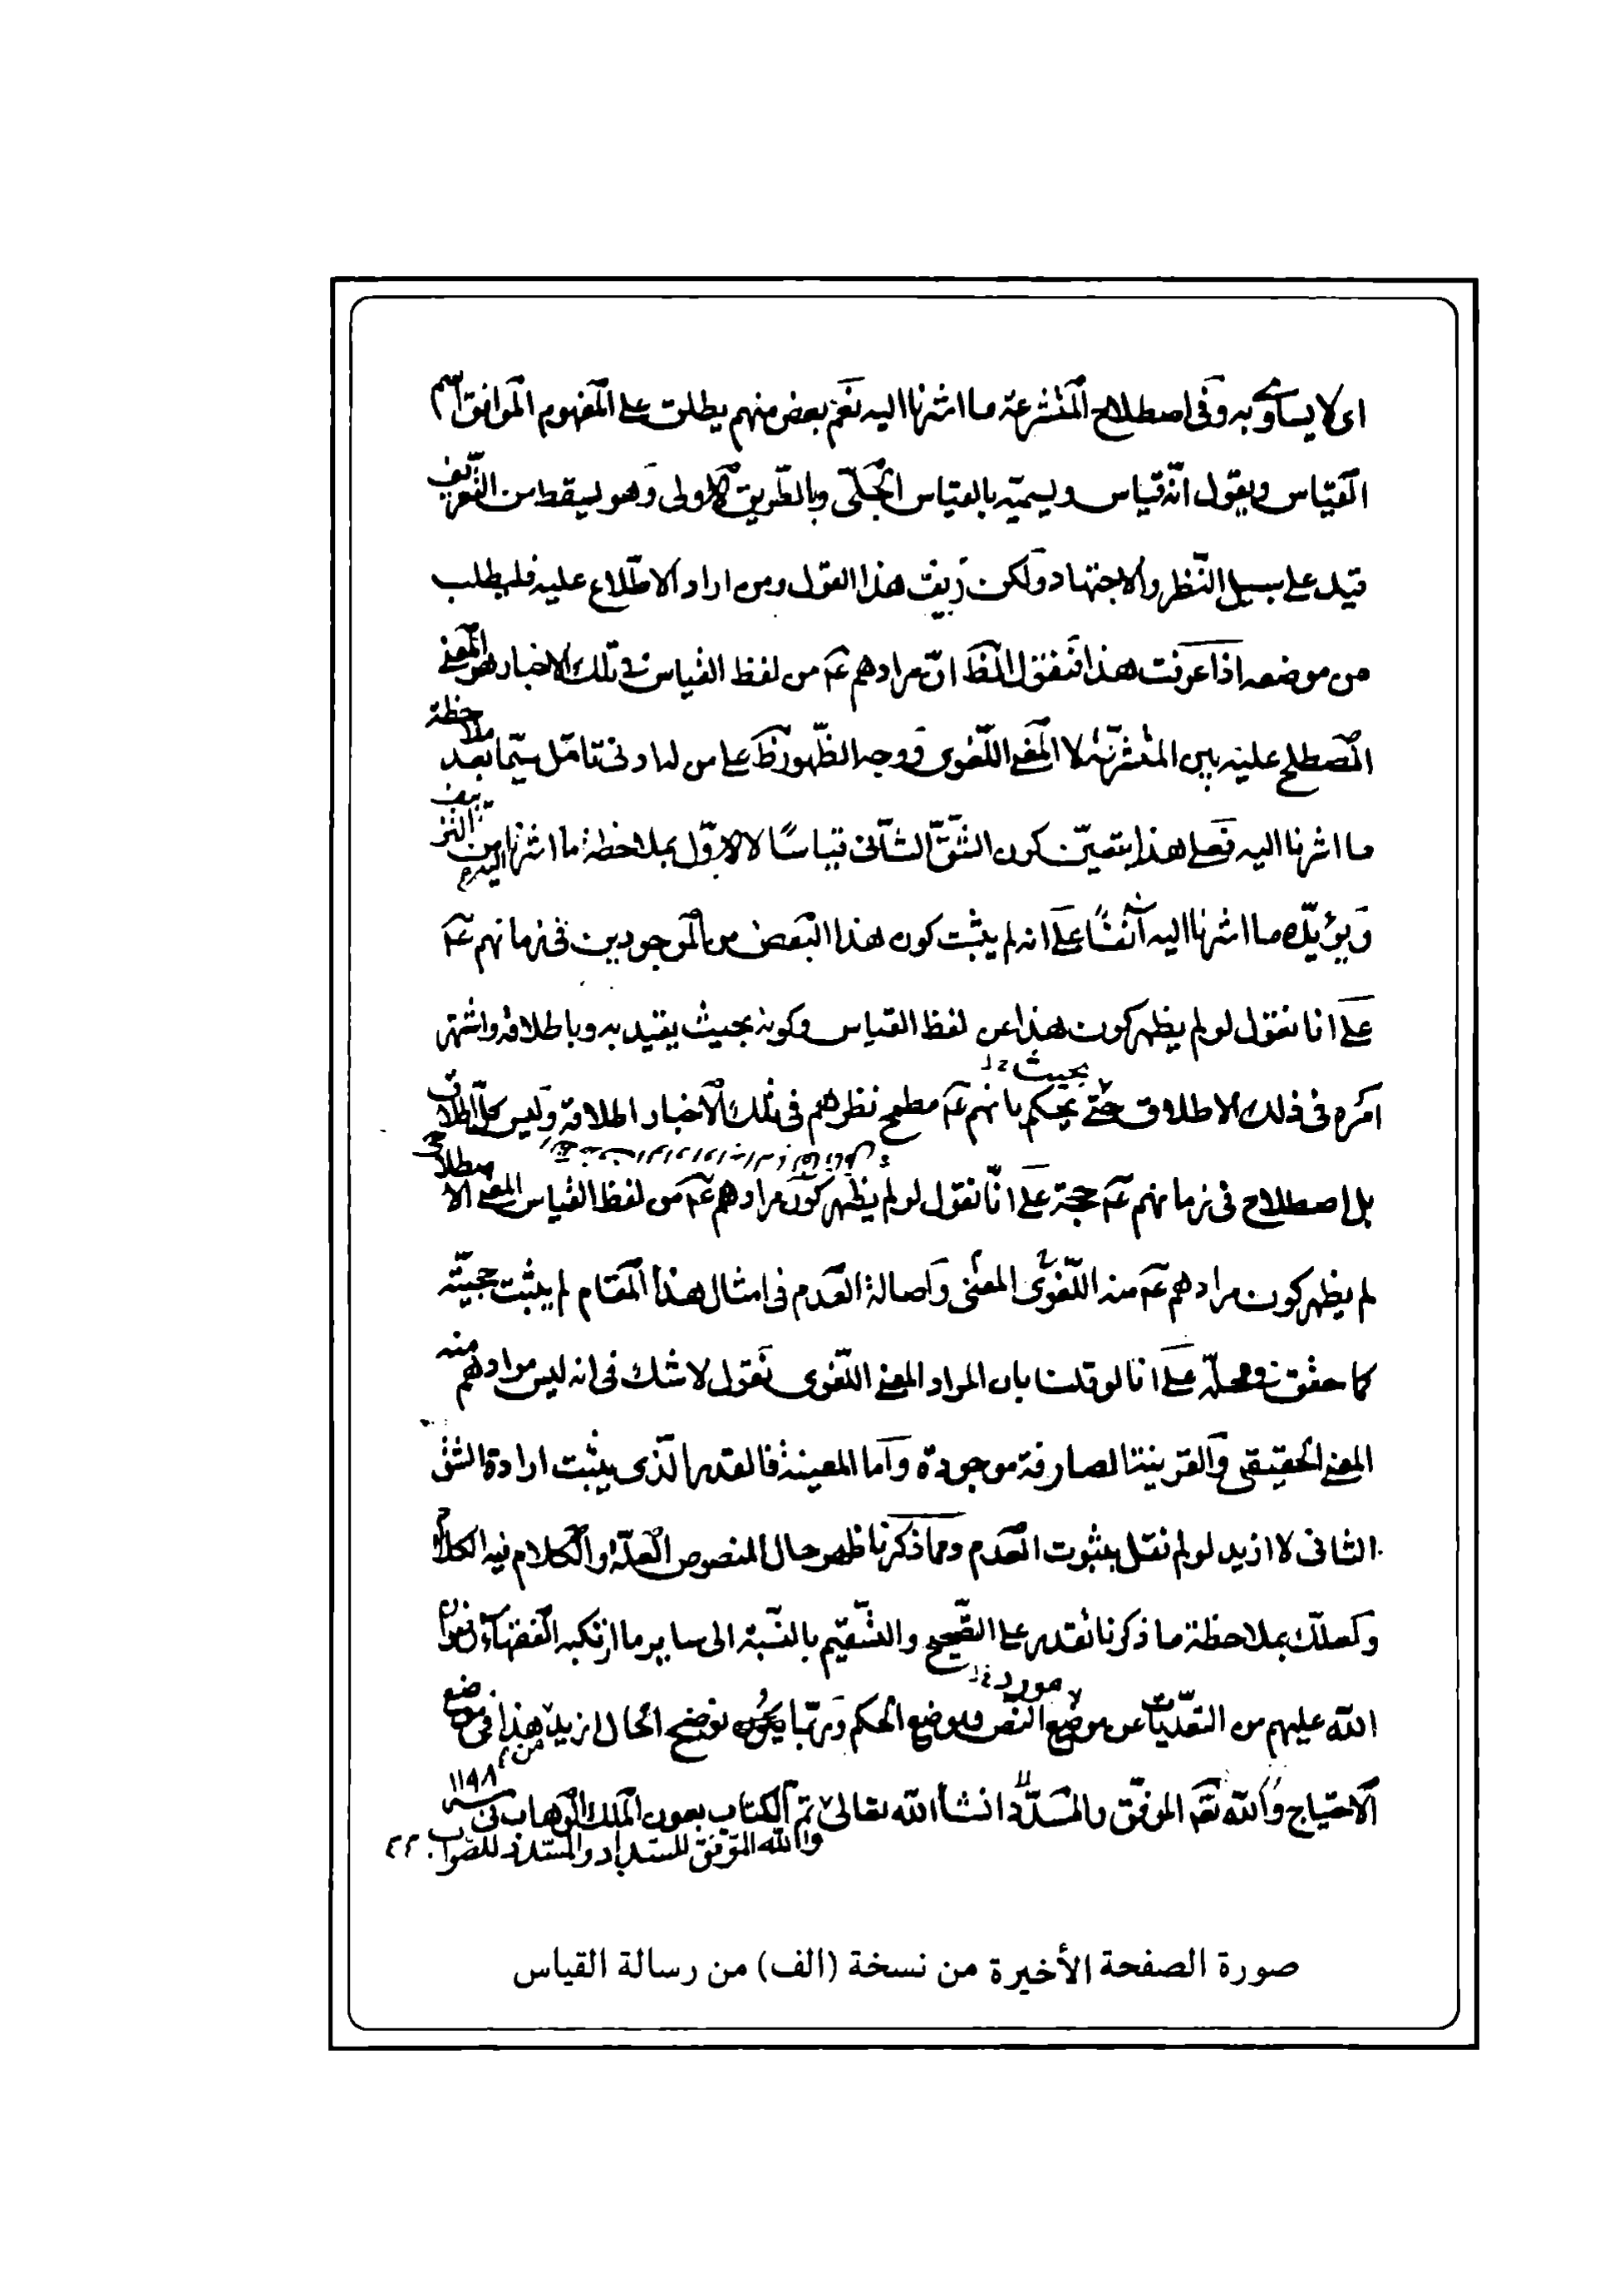 اى لا يساوى به وفى اصطلاح المتشرعة ما اشرنا اليه نعم بعض منهم يطلق على المفهوم الموافق اسم
القياس ويقول انّه قياس ويسميّه بالقياس الجلىّ وبالطّريق الاولى وهو يسقط من التّعريف
قيد على سبيل النّظر والاجتهاد ولكن زيّفت هذا القول ومن اراد الاطّلاع عليه فليطلب
من موضعه اذا عرفت هذا فنقول الظ انّ مرادهم عم من لفظ القياس فى تلك الاخبار هو المعنى
المصطلح عليه بين المتشرّعة لا المعنى اللّغوى ووجه الظّهور ظ على من له ادنى تامّل سيّما بعد ملاحظة
ما اشرنا اليه فعلى هذا يتعيّن كون الشّقّ الثّانى قياسًا لا الاوّل بملاحظة ما اشرنا اليه من التّعريف
ويؤيّده ما اشرنا اليه آنفًا على انه لم يثبت كون هذا البعض من الموجودين فى زمانهم عم
على انا نقول لو لم يظهر كون هذا عن لفظ القياس وكونه بحيث يقيد به وباطلاقه واشتهر
امره فى ذلك الاطلاق حتّى بحيث يحكم بانهم عم مطمح نظرهم فى تلك الاخبار اطلاقه وليس كلّ اطلاق
بل اصطلاح فى زمانهم عم حجة على انّا نقول لو لم يظهر كون مرادهم عم من لفظ القياس المعنى الاصطلاحى
لم يظهر كون مرادهم عم منه اللّغوى المعنى واصالة العدم فى امثال هذا المقام لم يثبت حجيّته
كما حقق فى محلّه على انا لو قلنا بان المراد المعنى اللّغوى نقول لا شك فى انه ليس مرادهم منه
المعنى الحقيقى والقرينة الصارفة موجودة واما المعينة فالقدر الّذى يثبت ارادة الشق
الثانى لا ازيد لو لم نقل بثبوت العدم ومما ذكرنا ظهر حال المنصوص العلّة والكلام فيه الكلام
ولعلّك بملاحظة ما ذكرنا تقدر على الصّحيح والسّقيم بالنّسبة الى ساير ما ارتكبه الفقهاء رضوان
اللّه عليهم من التعدّيات عن موضع النّص ومورد وموضع الحكم وربّما يكون نوضح الحال ازيد من هذا فى موضع
الاحتياج واللّه تعم الموفّق والمسدّد انشأ اللّه تعالى تم الكتاب بعون الملك الوهاب فى سنه ١١٩٨
واللّه الموفق للسداد والمسدد للصواب
صورة الصفحة الأخيرة من نسخة (الف) من رسالة القياس